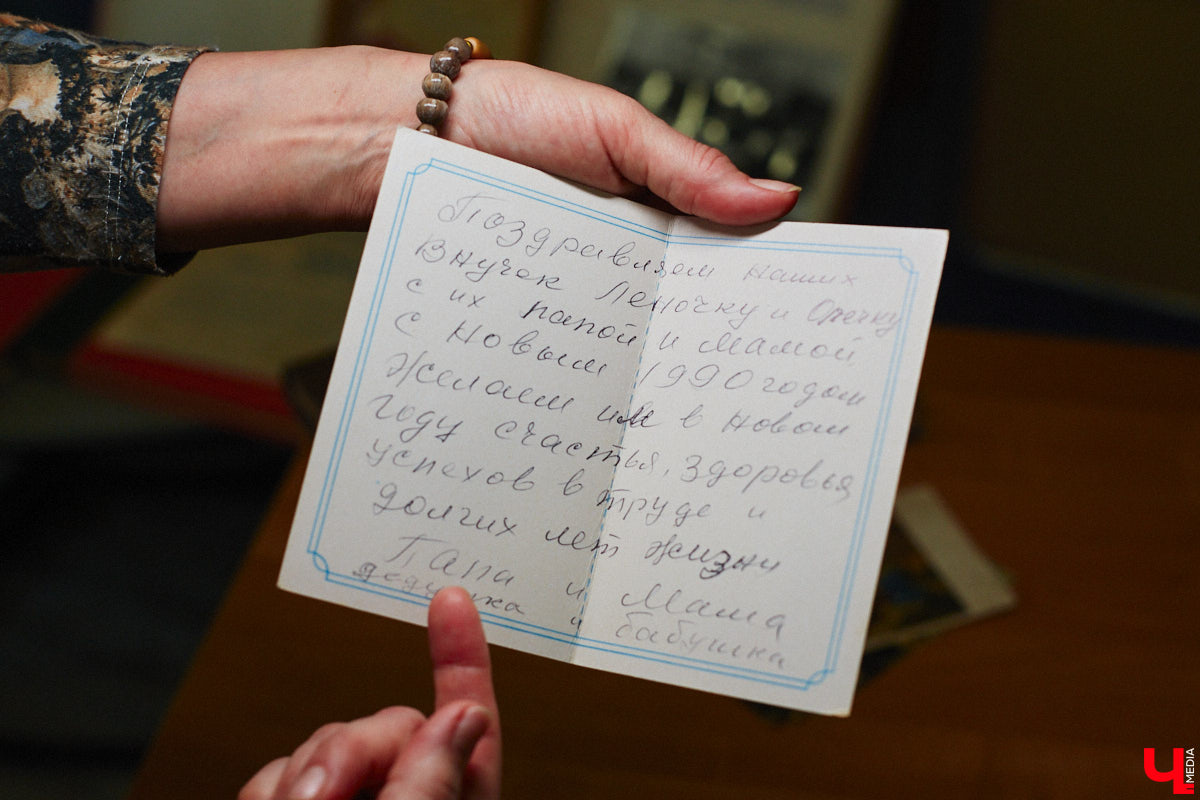 Поздравляем наших
внучек Леночку и Олечку
с их папой и мамой,
с Новым 1990 годом
Желаем им в новом
году счастья, здоровья
успехов в труде и
долгих лет жизни
Папа и Мама
дедушка и бабушка
Ч MEDIA